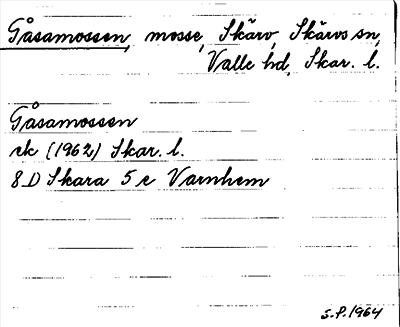 Gåsamossen, mosse, Skärv, Skärvs sn,
Valle hd, Skar. l.
Gåsamossen
ek (1962) Skar. l.
8D Skara 5e Varnhem
S.P. 1964